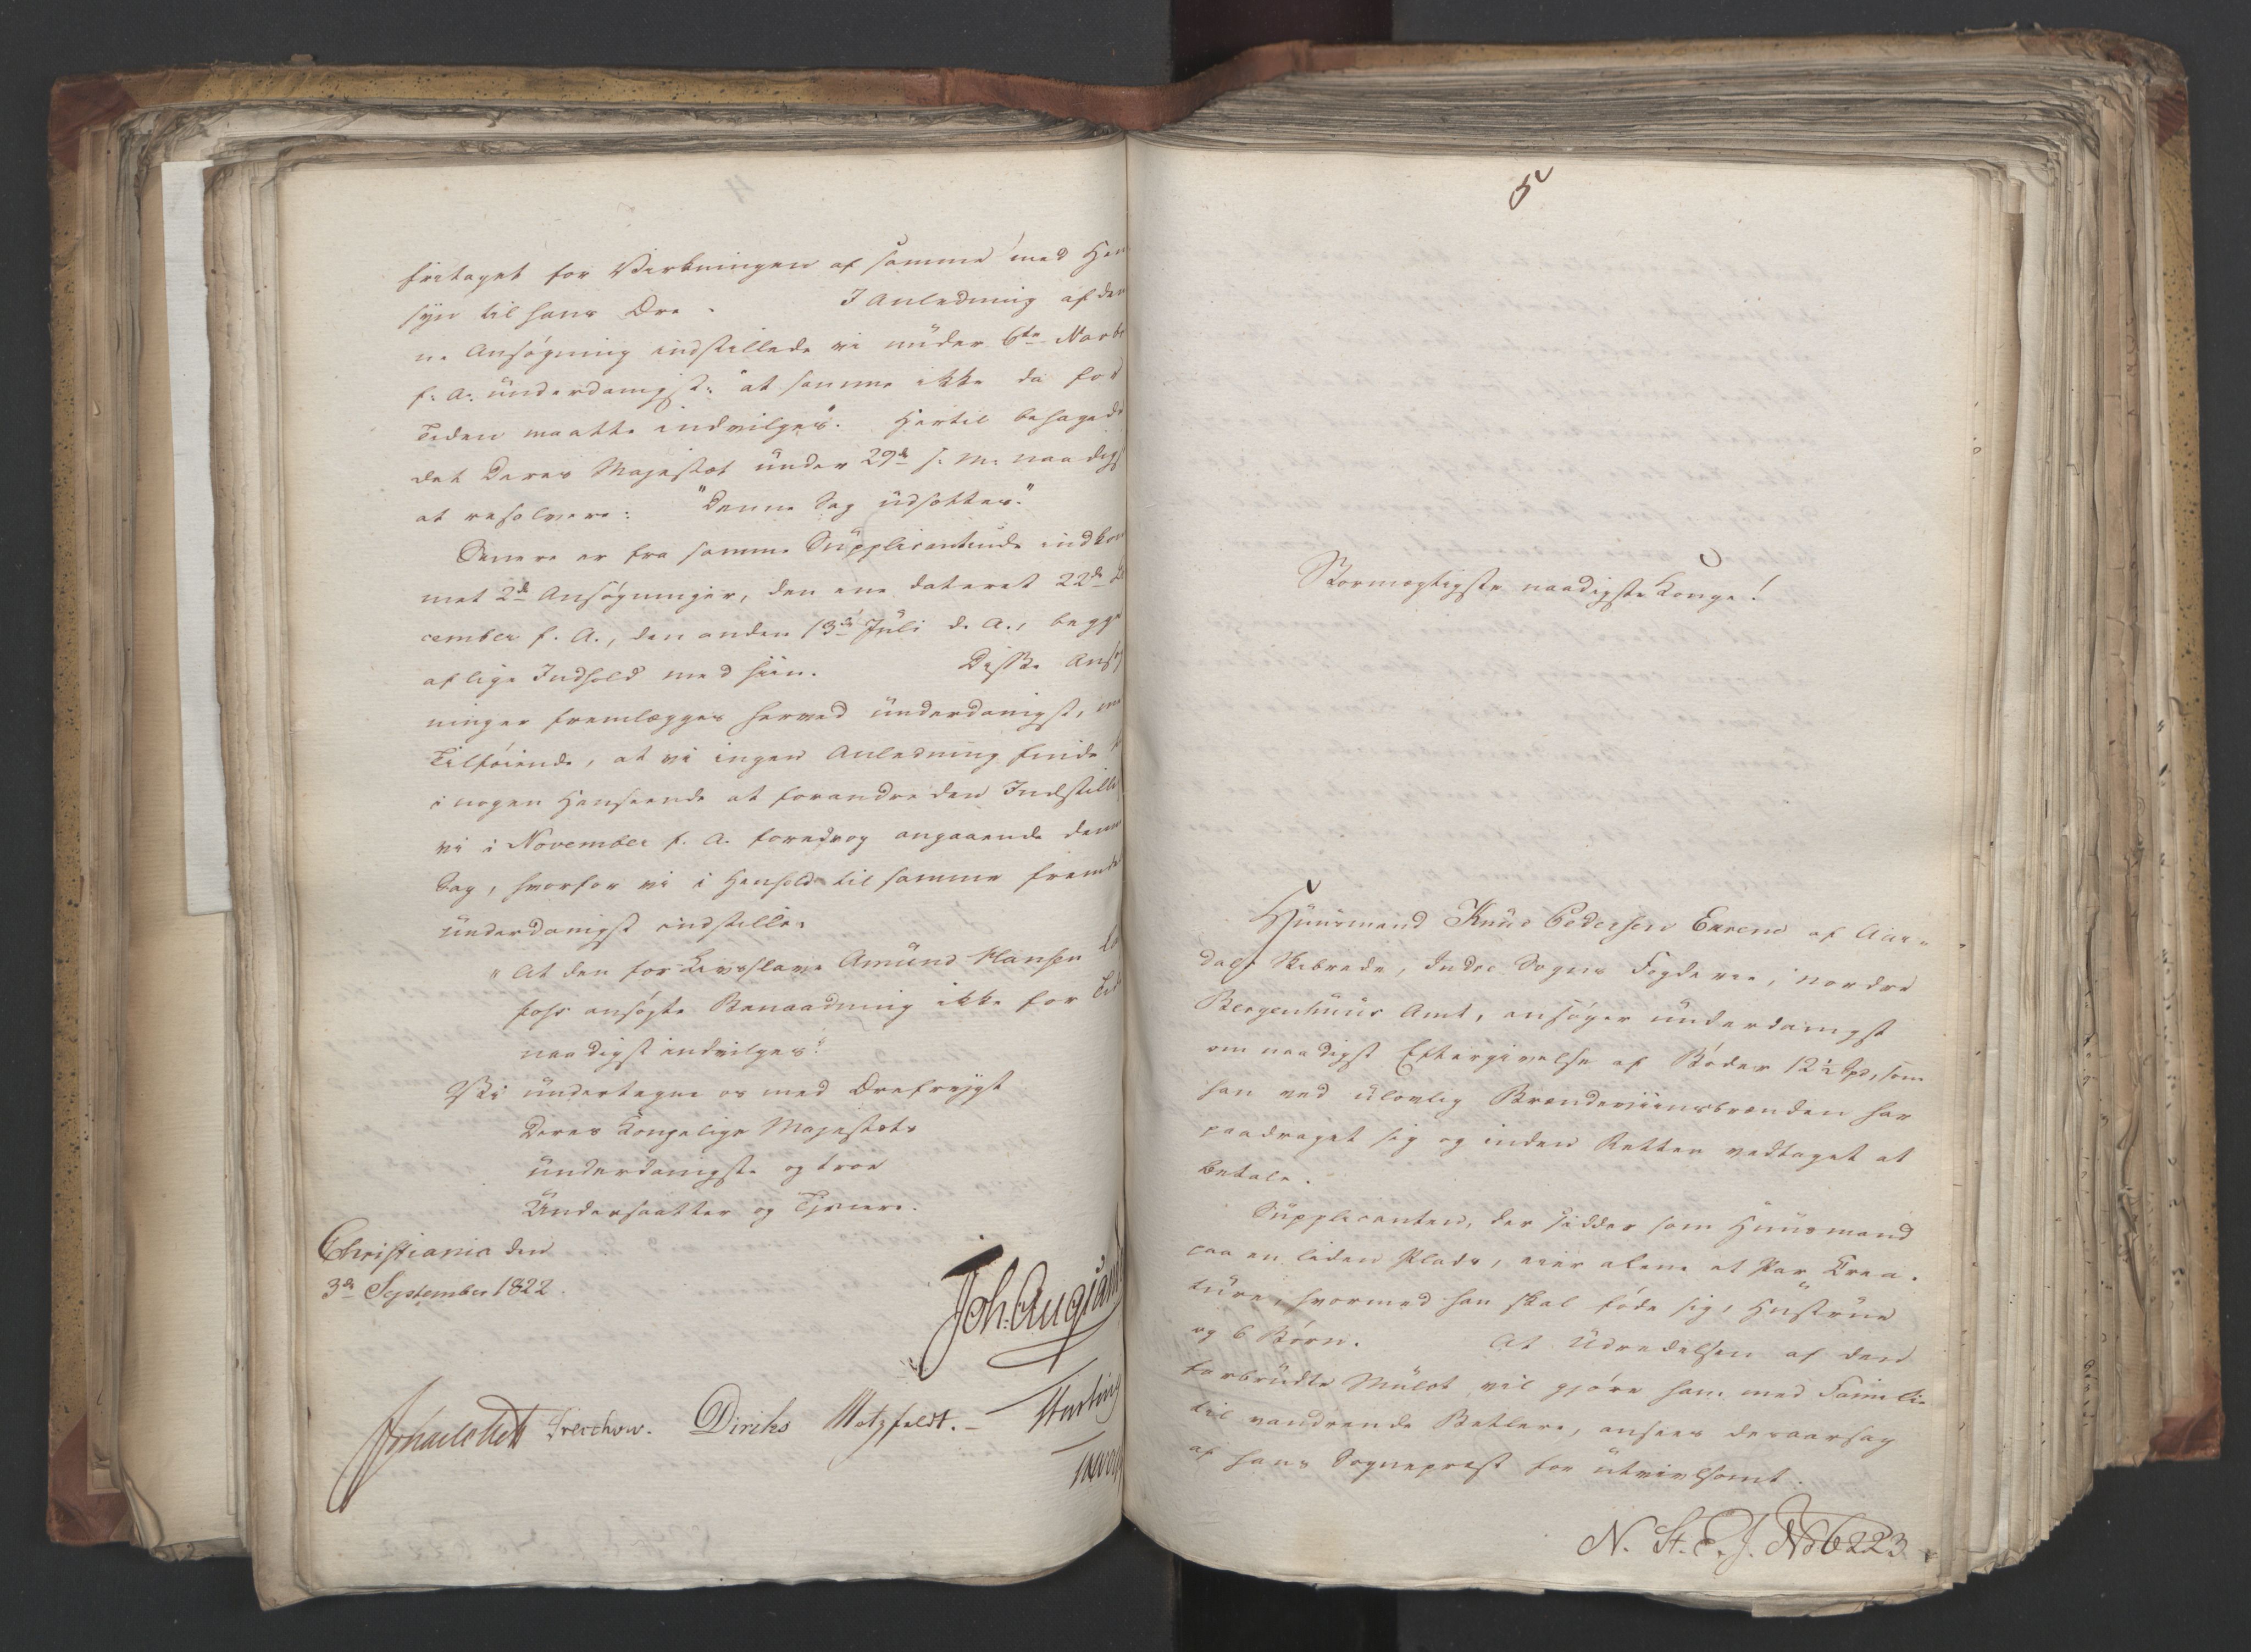 fritaget for Virkningen af samme med Hen
syn til hans Ære. I Anledning af den
ne Ansøgning indstillede vi under 6te Novbr
f. A. underdanigst: "at samme ikke da for
Tiden maatte indvilges". Hertil behagede
det Deres Majestæt under 29de s. M. naadigst
at resolvere: "Denne Sag udsættes."
Senere er fra samme Supplicantinde indkom
met 2de Ansøgninger, den ene dateret 22de De
cember f. A., den anden 13de Juli d. A., begge
af lige Indhold med hiin. Disse Ansøg
ninger fremlægges herved underdanigst, med
Tilføiende, at vi ingen Anledning finde til
i nogen Henseende at forandre den Indstilling
vi i November f. A. foredrog angaaende denne
Sag, hvorfor vi i Henhold til samme fremdeles
underdanigst indstille:
"At den for Livsslave Amund Hansen
fos ansøgte Benaadning ikke for Tiden
naadigst indvilges."
Vi undertegne os med Ærefrygt
Deres Kongelige Majestæts
underdanigste og troe
Undersaatter og Tjenere.
Christiania den
3de September 1822.
Joh. Aug. Sand
Jonas Collett Treschow. Diriks Motzfeldt. –
5
Stormægtigste naadigste Konge!
Huusmand Knud Pedersen Eereno af Aar-
dals Skibrede, Indre Sogns Fogderie, nordre
Bergenhuus Amt, ansøger underdanigst
om naadigst Eftergivelse af Bøder 12½ Spd, som
han ved ulovlig Brændeviinsbrænden har
paadraget sig og inden Retten vedtaget at
betale.
Supplicanten, der sidder som Huusmand
paa en liden Plads, eier alene et Par Krea-
ture, hvormed han skal føde sig, Hustrue
og 6 Børn. At Udredelsen af den
forbrudte Mulct vil gjøre ham med Familie
til vandrende Betlere, ansees desaarsag
af hans Sognepræst for utvivlsomt.
N. St. E. J. No 6223.